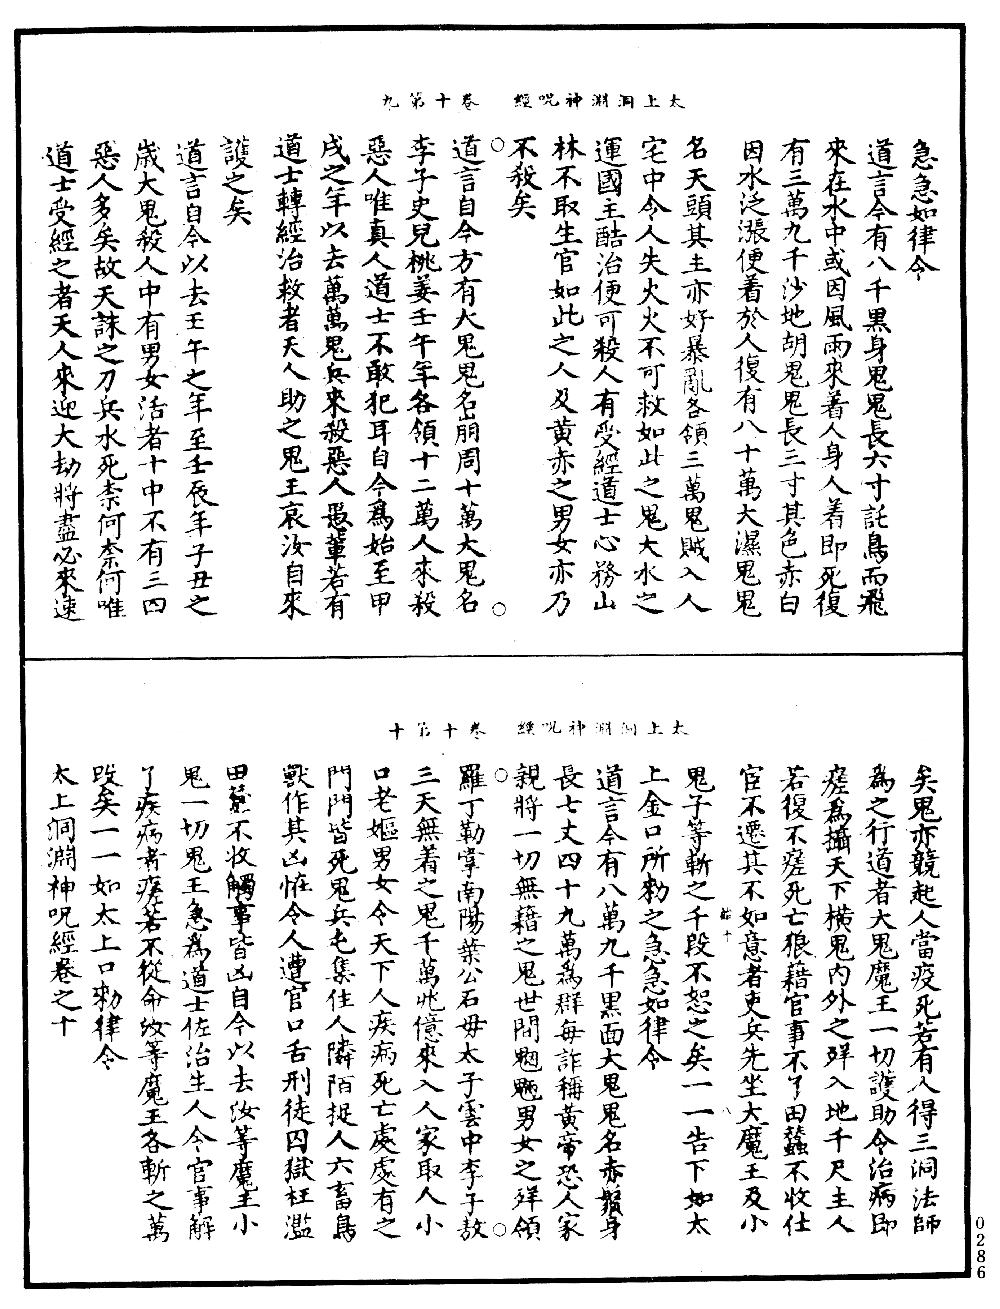 太上洞淵神呪經　卷十第九
急急如律令
道言今有八千黑身鬼鬼長六寸託鳥而飛
來在水中或因風雨來着人身人着即死復
有三萬九千沙地胡鬼鬼長三寸其色赤白
因水泛漲便着於人復有八十萬大濕鬼鬼
名天頭其主亦好暴亂各領三萬鬼賊入人
宅中令人失火火不可救如此之鬼大水之
運國主酷治便可殺人有受經道士心務山
林不取生官如此之人及黃赤之男女亦乃
不殺矣
道言自今方有大鬼鬼名崩周十萬大鬼名
李子史兒桃姜壬午年各領十二萬人來殺
惡人唯真人道士不敢犯耳自今為始至甲
戌之年以去萬萬鬼兵來殺惡人愚輩若有
道士轉經治救者天人助之鬼王哀汝自來
護之矣
道言自今以去壬午之年至壬辰年子丑之
歲大鬼殺人中有男女活者十中不有三四
惡人多矣故天誅之刀兵水死柰何柰何唯
道士受經之者天人來迎大劫將盡必來速
太上洞淵神呪經　卷十第十
矣鬼亦競起人當疫死若有人得三洞法師
為之行道者大鬼魔王一切護助令治病即
瘥為攝天下橫鬼內外之殍入地千尺主人
若復不瘥死亡狼藉官事不了田蠶不收仕
宦不遷其不如意者吏兵先坐大魔王及小
鬼子等斬之千段不恕之矣一一告下如太
上金口所勑之急急如律令
道言今有八萬九千黑面大鬼鬼名赤鬚身
長七丈四十九萬為群每詐稱黃帝恐人家
親將一切無藉之鬼世間魍魎男女之殍領
羅丁勒掌南陽葉公石毋太子雲中李子敖
三天無着之鬼千萬兆億來入人家取人小
口老嫗男女令天下人疾病死亡處處有之
門門皆死鬼兵屯集住人隣陌捉人六畜鳥
獸作其凶恠令人遭官口舌刑徒囚獄枉濫
田蠶不收觸事皆凶自今以去汝等魔王小
鬼一切鬼王急為道士佐治生人令官事解
了疾病者瘥若不從命汝等魔王各斬之萬
段矣一一如太上口勑律令
太上洞淵神呪經卷之十
0286